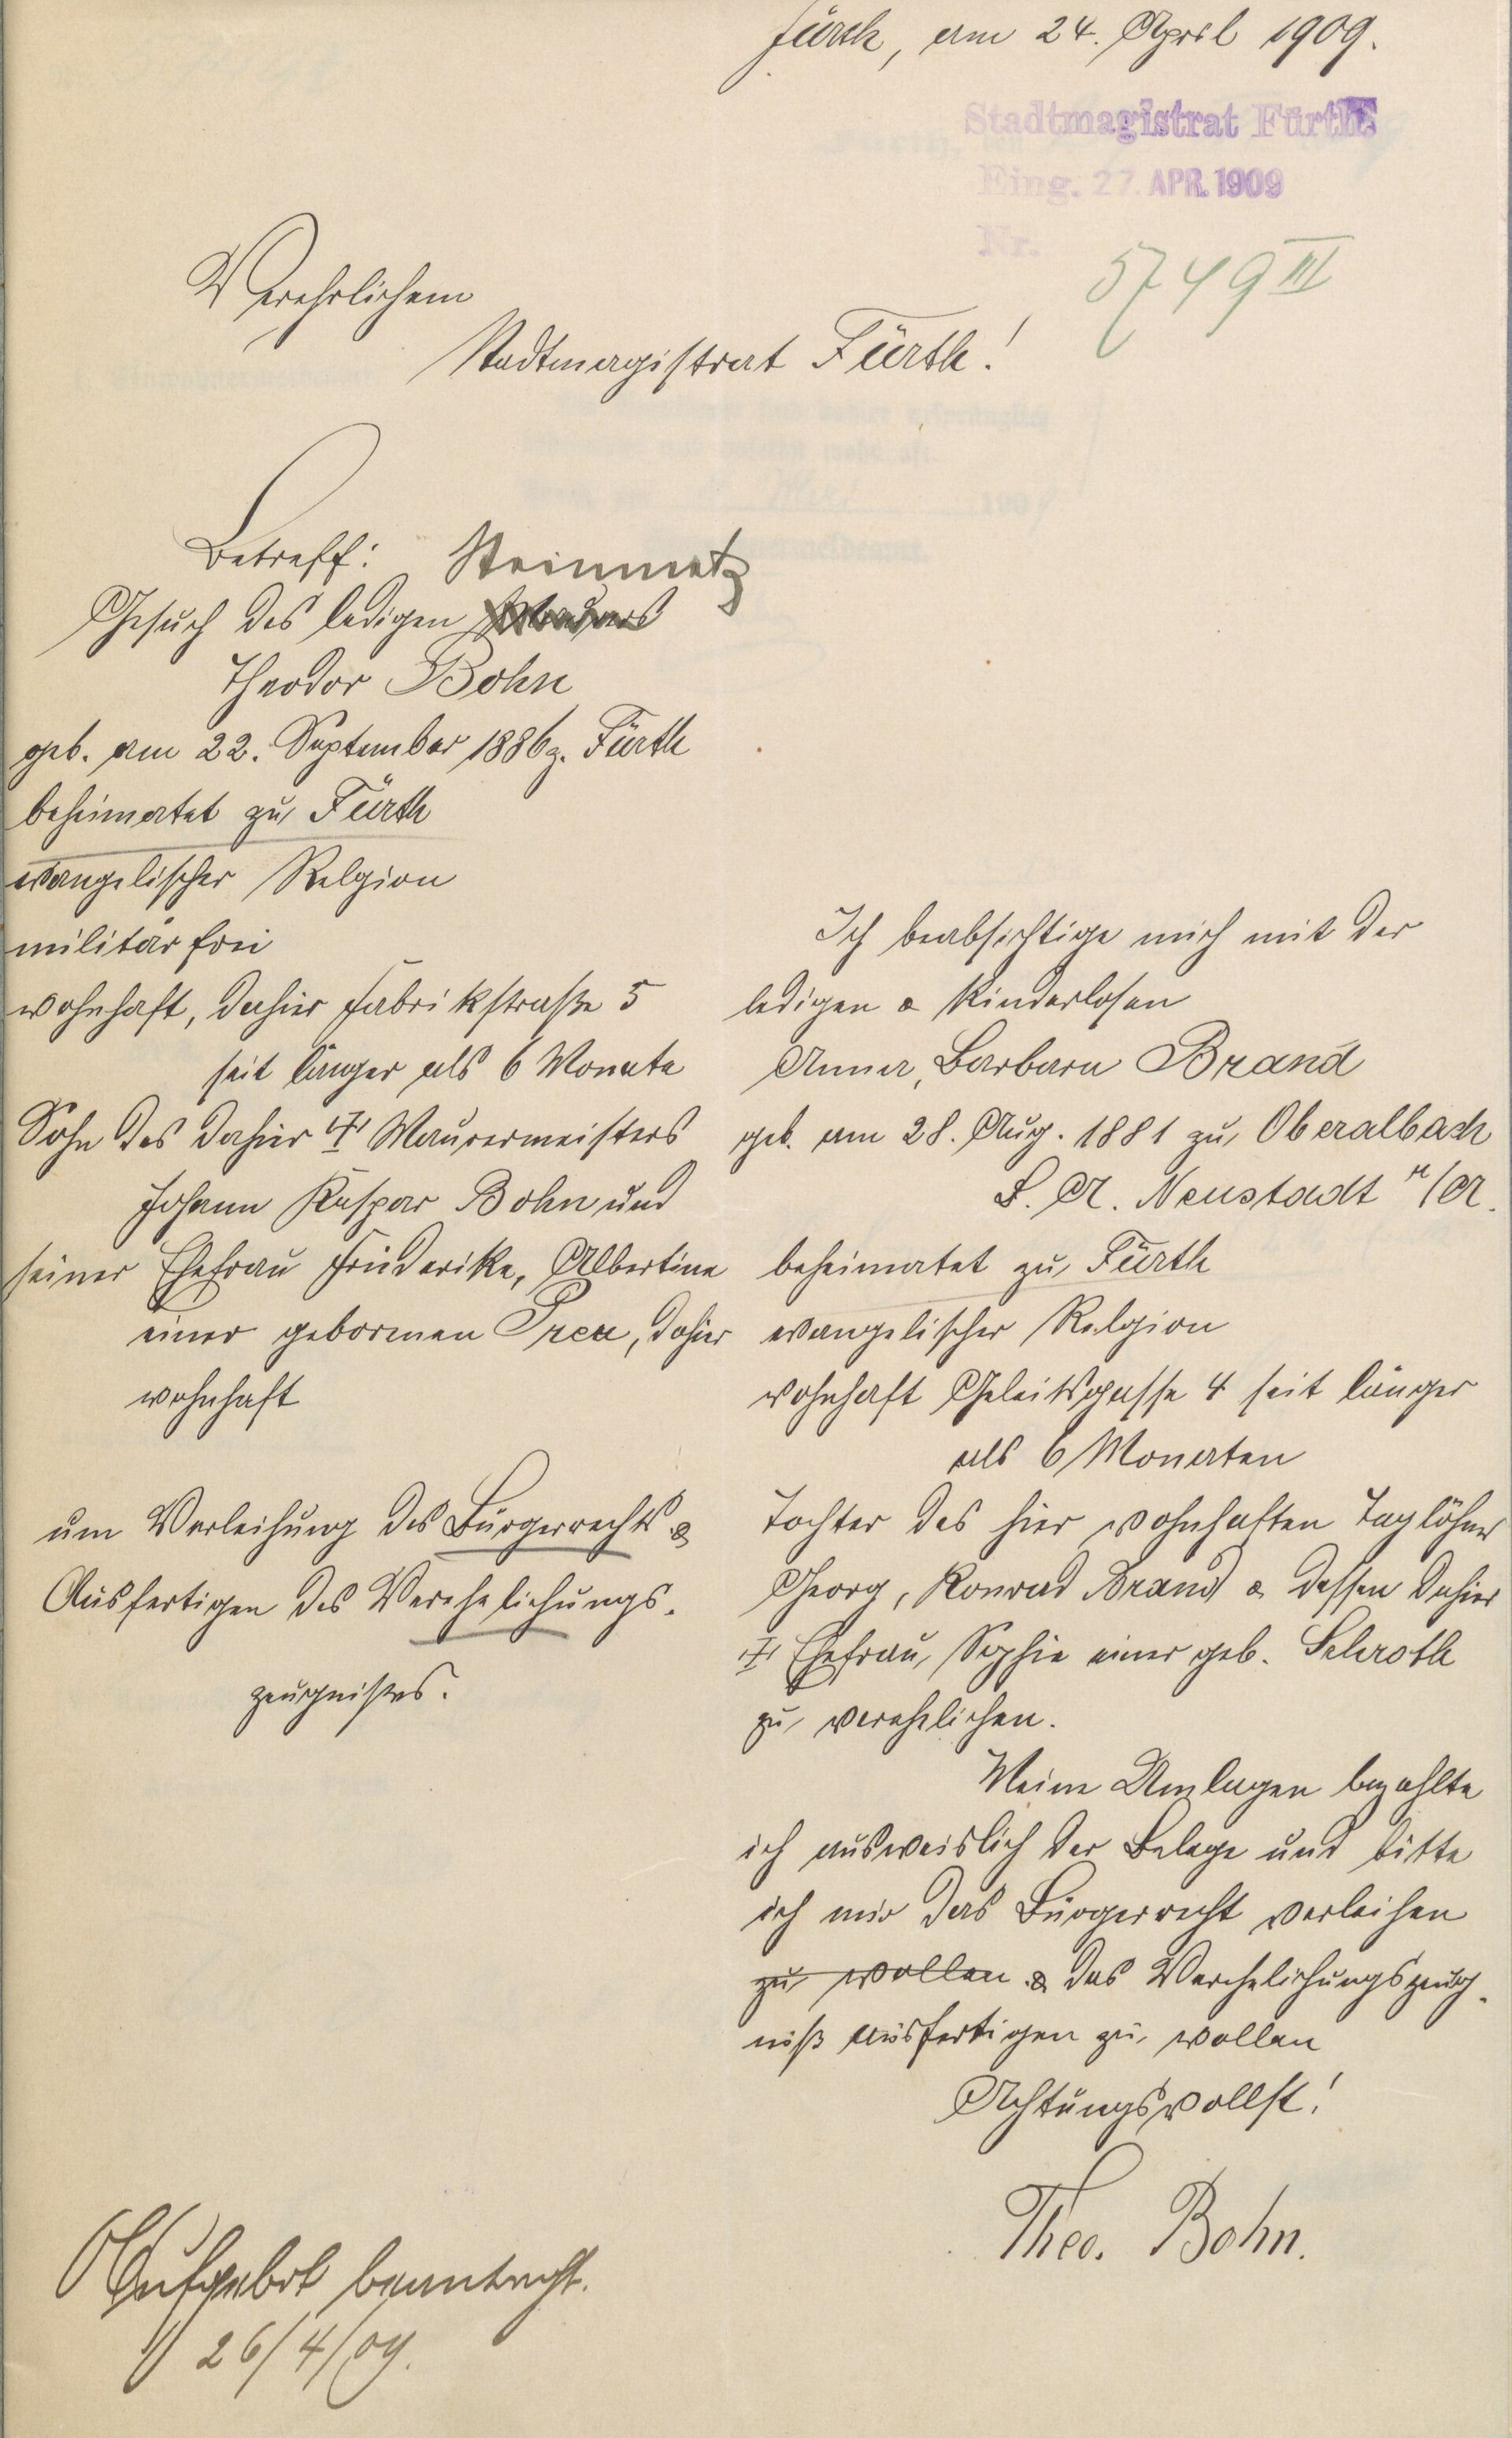 Fürth, am 24. April 1909.
Stadtmagistrat Fürth
Eing. 27. APR. 1909
Nr.
5749 III
Verehrlichem
Stadtmagistrat Fürth!
Betreff: Steinmetz
Gesuch des ledigen
Theodor Bohn
geb. am 22. September 1886 z. Fürth
beheimatet zu Fürth
evangelischer Relgion
militärfrei
wohnhaft, dahier Fabrikstraße 5
seit länger als 6 Monate
Sohn des dahier † Maurermeisters
Johann Kaspar Bohn und
seiner Ehefrau Friederike, Albertine
einer gebornen, dahier
wohnhaft
um Verleihung des Bürgerrechts &
Ausfertigen des Verehelichungs-
zeugnißes.
Ich beabsichtige mich mit der
ledigen & Kinderlosen
Anna, Barbara Brand
geb. am 28. Aug. 1881 zu Oberalbach
B. A. Neustadt a/A.
beheimatet zu Fürth
evangelischer Relgion
wohnhaft Geleitsgasse 4 seit länger
als 6 Monaten
Tochter des hier wohnhaften Taglöhners
Georg, Konrad Brand & dessen dahier
† Ehefrau, Sophie einer geb. Schroth
zu verehelichen.
Meine Umlagen bezahlte
ich ausweislich der Belege und bitte
ich mir das Bürgerrecht verleihen
zu wollen & das Verehelichungszeug-
niß ausfertigen zu wollen
Achtungsvollst!
Theo. Bohn.
Aufgebot beantragt.
26/4/09.